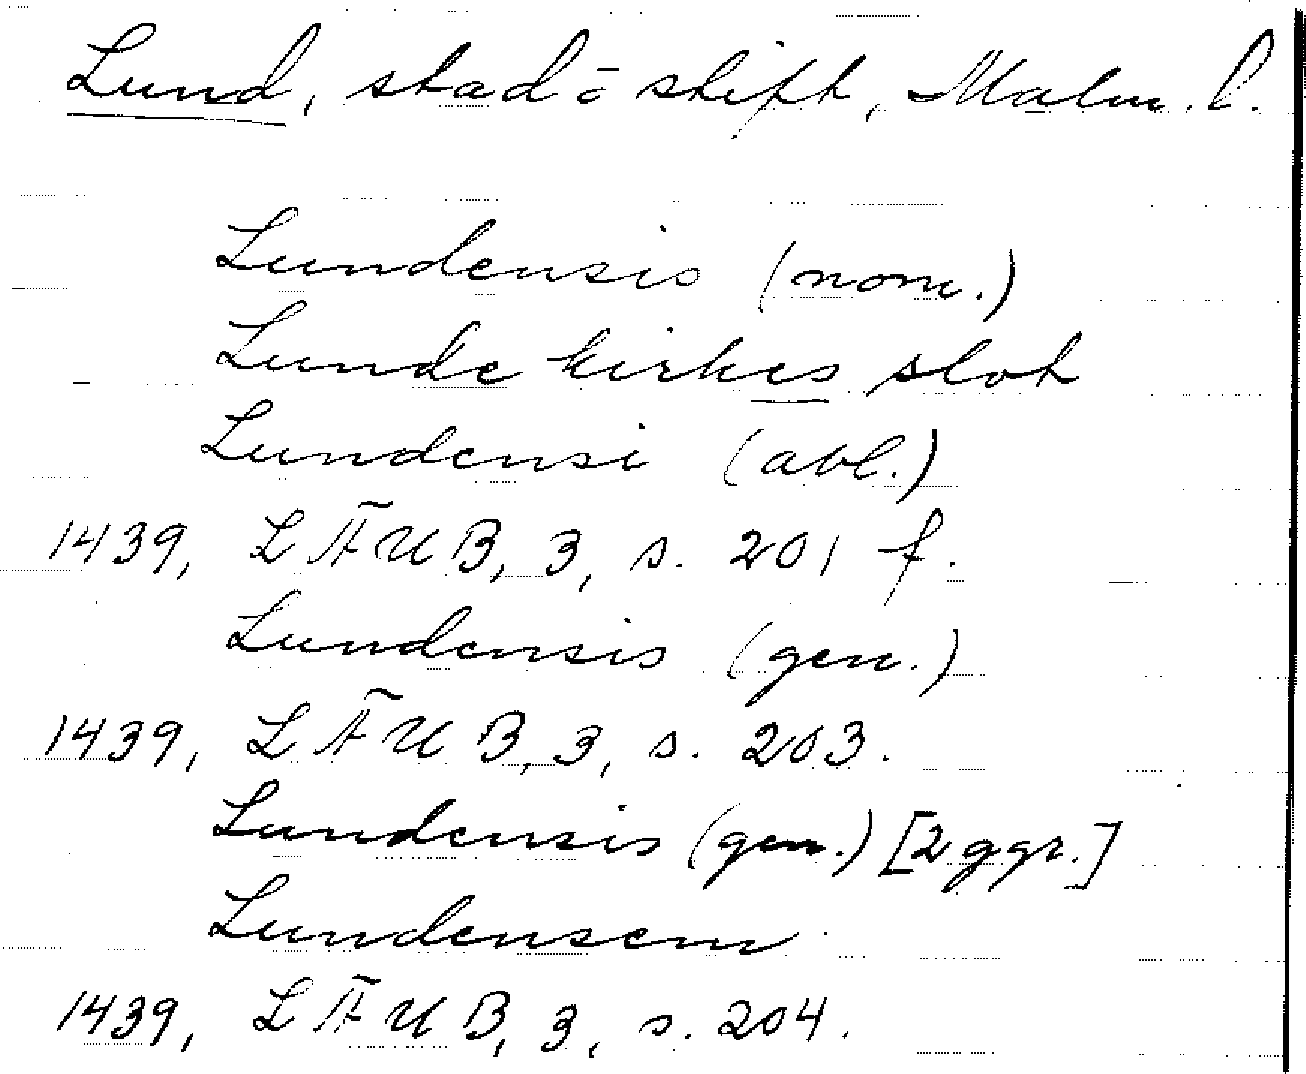 Lund, stad o. stift, Malm. l.
Lundensis (nom.)
Lunde kirkes slot
Lundensi (abl.)
1439, LÄUB, 3, s. 201 f.
Lundensis (gen.)
1439, LÄUB, 3, s. 203.
Lundensis (gen.) [2 ggr.]
Lundensem
1439, LÄUB, 3, s. 204.